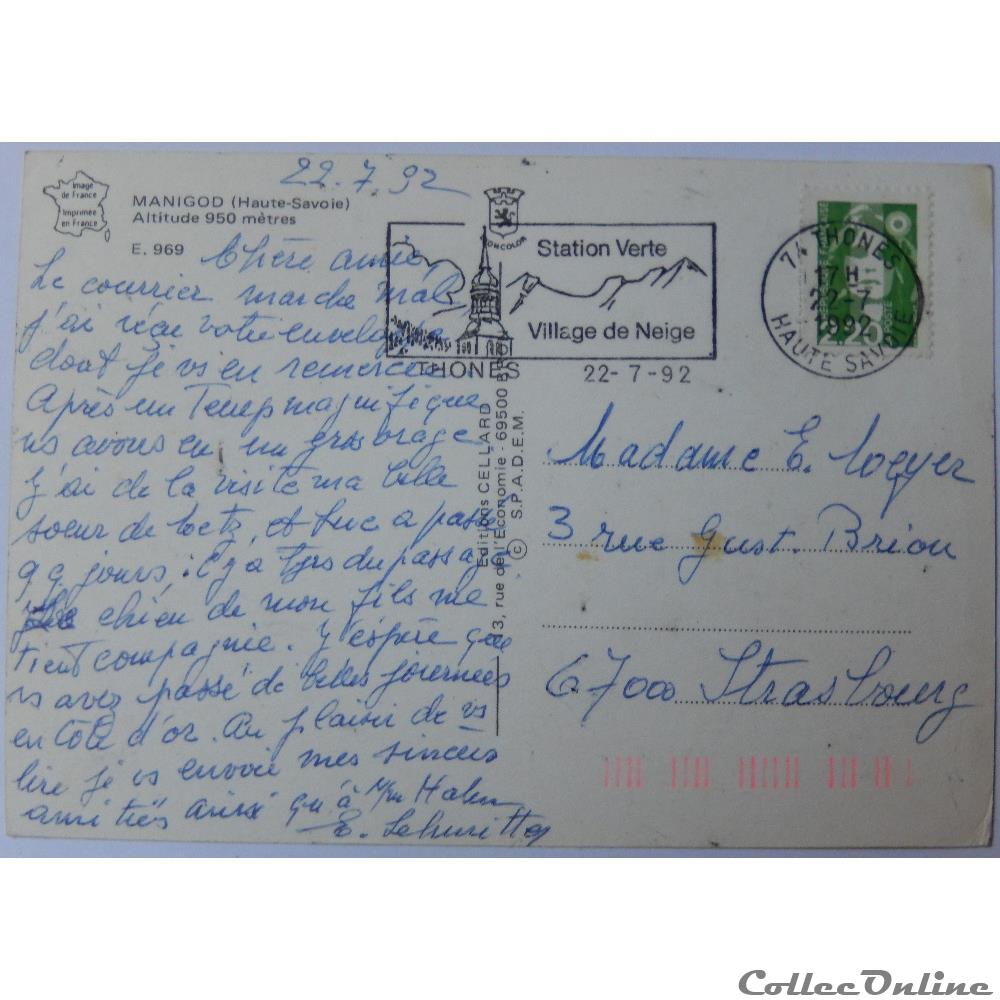 22.7 92
Image
de France
Imprimée
en France
MANIGOD (Haute-Savoie)
Altitude 950 mètres
E. 969
Chère amie
Le courrier marche mal
j'ai reçu votre enveloppe
dont je vs en remercie.
Après un Temps magnifique
ns avons eu un gros orage
J'ai de la visite ma belle
soeur de et Luc a passé
qq jours, il y a tjrs du passage
chien de mon fils me
tient compagnie. J'espère que
vs avez passé de belles journées
en Côte d'or. Au plaisir de vs
lire je vs envoie mes sincères
amitiés ainsi qu'à
E.
COMCOLOR
Station Verte
Village de Neige
THONES
22-7-92
74 THONES
17 H
22-7
1992
HAUTE SAVOIE
Editions CELLARD
13, rue de l'Economie - 69500
© S.P.A.D.E.M.
Madame E.
3 rue Gust. Brion
67000 Strasbourg
CollecOnline